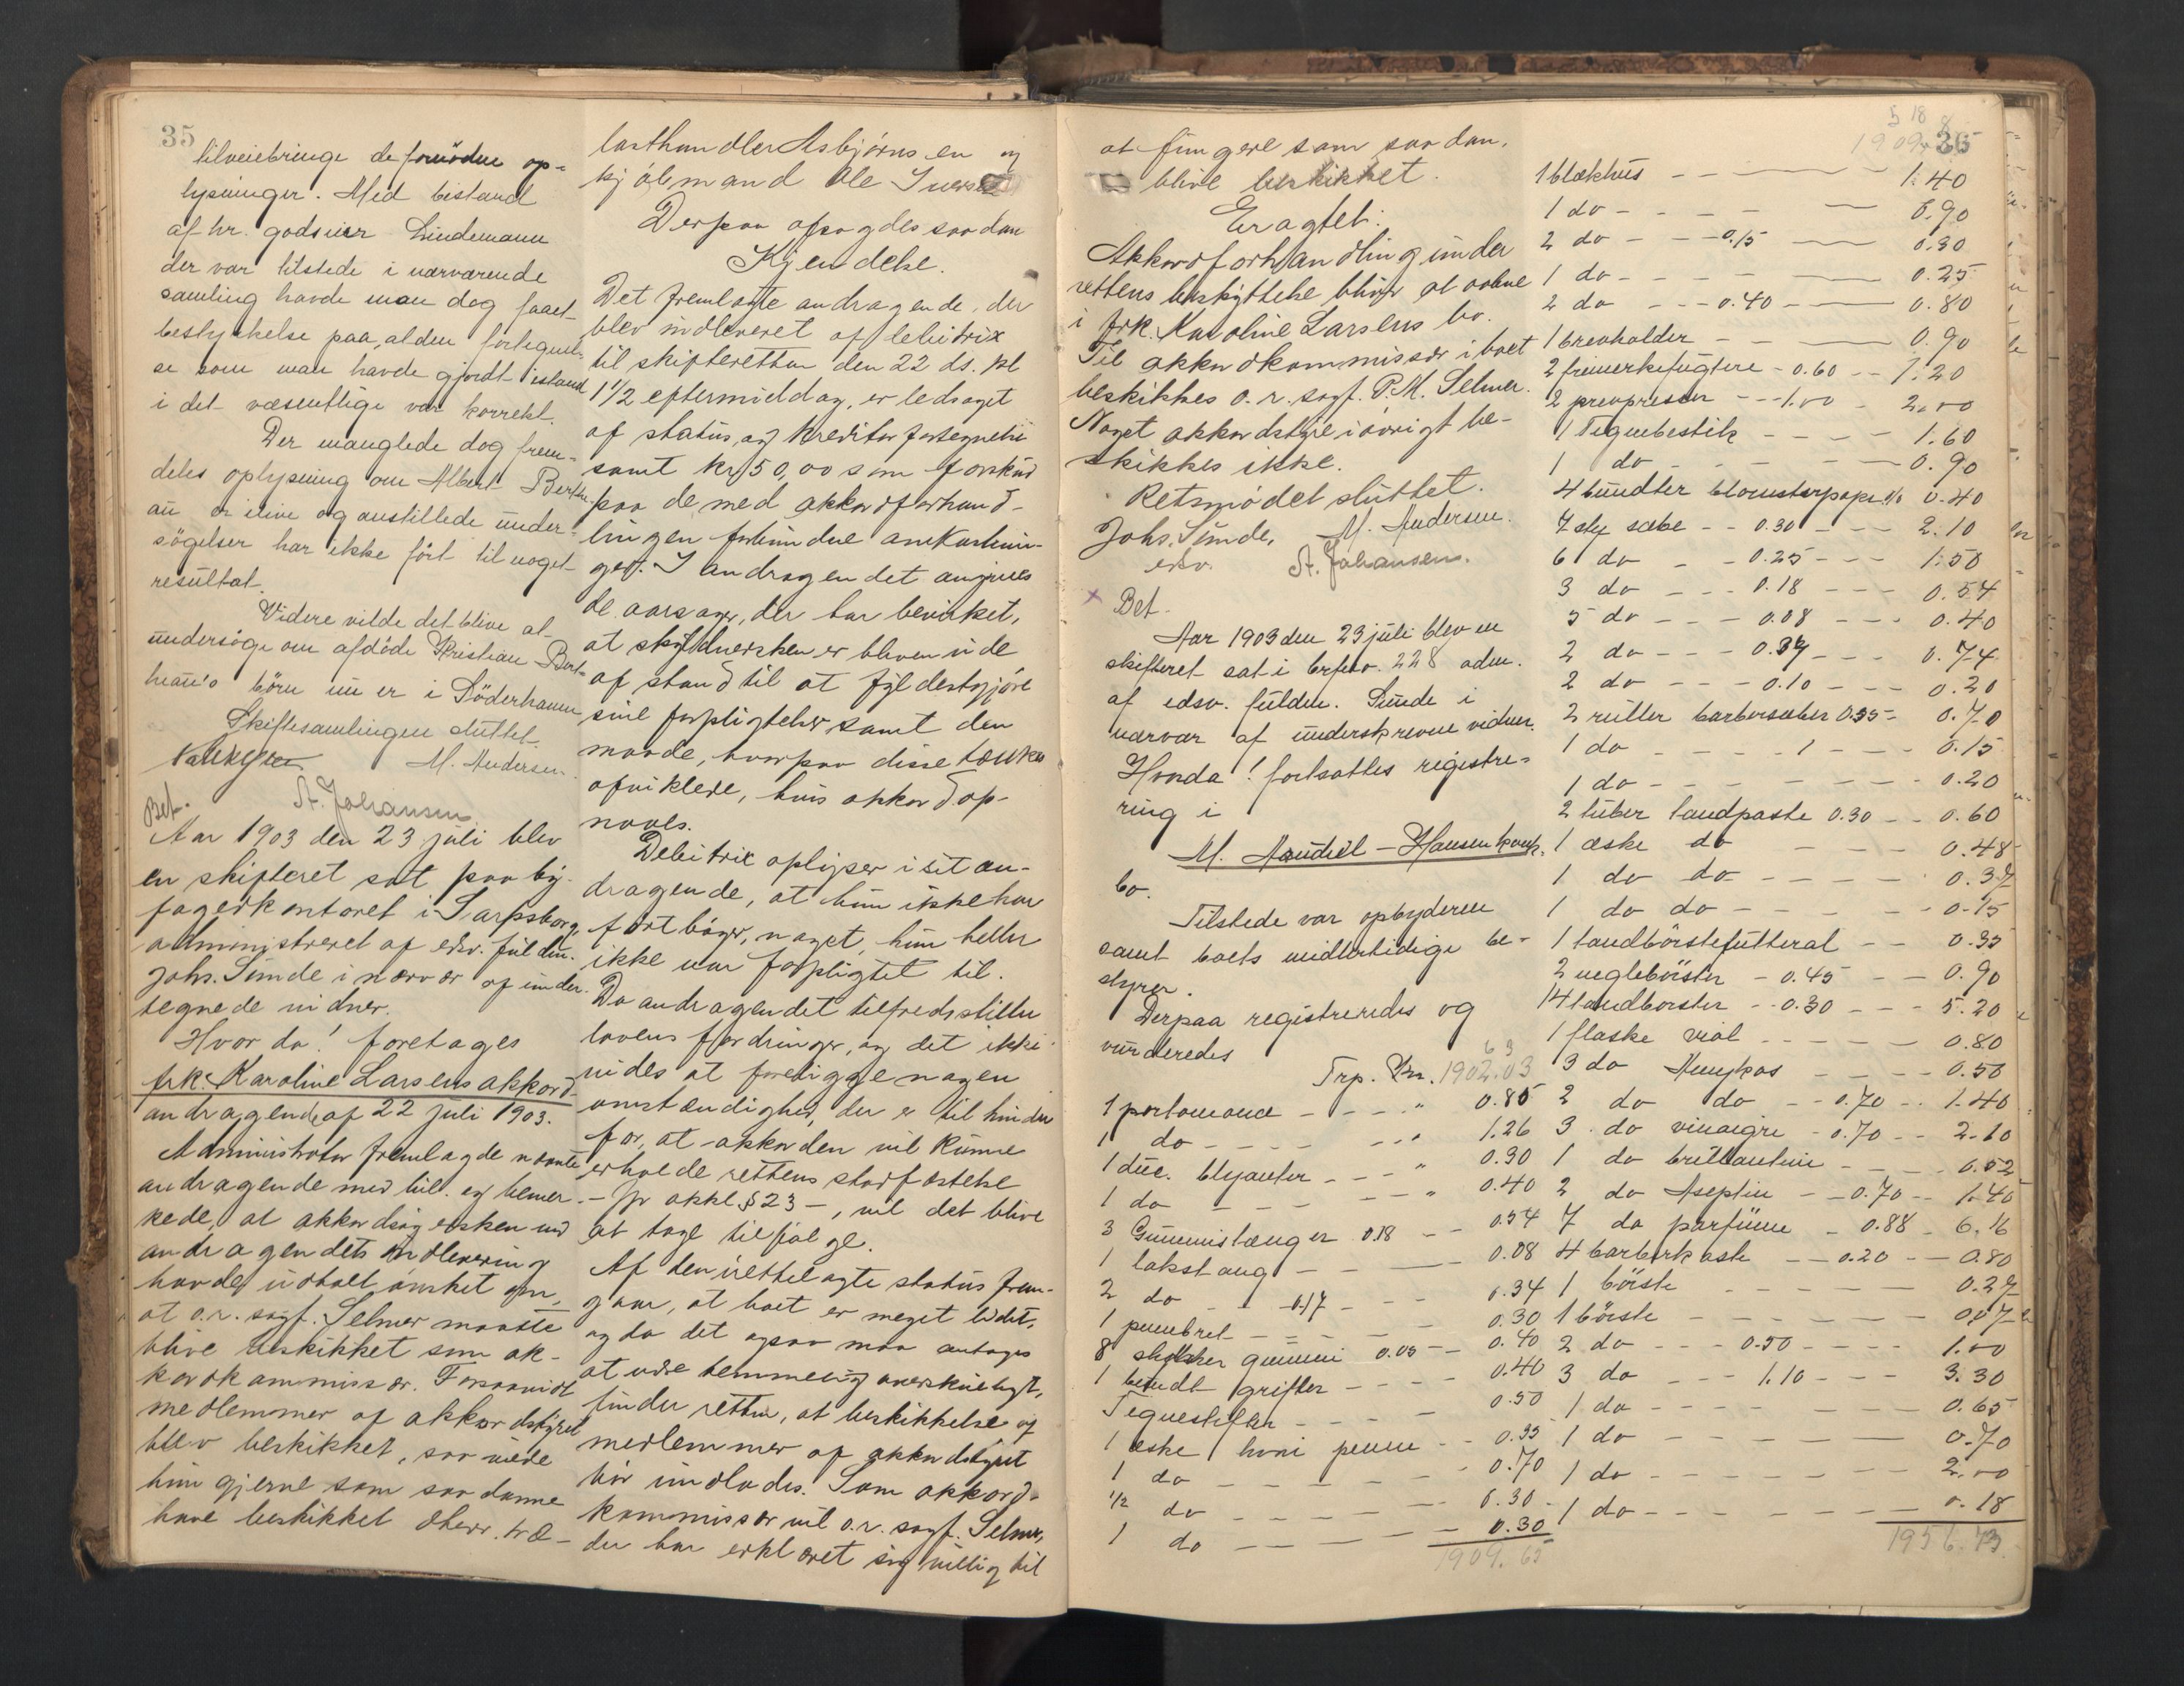 35
tilveiebringe de fornödne op-
lysninger. Med bistand
af hr. godseier Lindemann
der var tilstede i nærværende
samling havde man dog faaet
bestyrkelse paa, at den fortegnel-
se som man havde gjordt istand
i det væsentlige var korrekt.
Der manglede dog frem-
deles oplysning om Albert
er ilive og anstillede under-
sögelser har ikke fört til noget
resultat.
Videre vilde det blive at
undersöge om afdöde Kristian Bert-
börn nu er i Söderhamn
Skiftesamlingen sluttet.
M. Andersen.
A. Johansen.
Bet.
Aar 1903 den 23 juli blev
en skifteret sat paa by-
fogedkontoret i Sarpsborg,
administreret af edsv. fuldm.
Johs. Sunde i nærvær af under-
tegnede vidner.
Hvor da! foretages
frk. Karoline Larsens akkord-
andragende af 22 juli 1903.
Administrator fremlagde nævnte
andragende med bil. og bemer-
kede, at akkordsögersken ved
andragendets indlevering
havde udtalt önsket om,
at o.r. sagf. Selmer maatte
blive beskikket som ak-
kordkommissær. Forsaavidt
medlemmer af akkordstyret
blev beskikket, saa vilde
hun gjerne som saadanne
have beskikket dherr. træ-
lasthandler Asbjørnsen og
kjöbmand Ole Iversen
Derpaa afsagdes saadan
Kjendelse.
Det fremlagte andragende, der
blev indleveret af debitrix
til skifteretten den 22 ds. kl
1 1/2 eftermiddag, er ledsaget
af status og kreditorfortegnelse
samt kr 50,00 som forskud
paa de med akkordforhand-
lingen forbundne omkostnin-
ger. I andragendet angives
de aarsager, der har bevirket,
at skyldnersken er bleven ude
af stand til at fyldestgjöre
sine forpligtelser samt den
maade, hvorpaa disse tænkes
afviklede, hvis akkord op-
naaes.
Debitrix oplyser i sit an-
dragende, at hun ikke har
fört böger, noget, hun heller
ikke var forpligtet til.
Da andragendet tilfredsstiller
lovens fordringer, og det ikke
vides at foreligge nogen
omstændighed, der er til hinder
for, at akkorden vil kunne
erholde rettens stadfæstelse
– jfr akkl § 23 –, vil det blive
at tage tilfölge.
Af den irettelagte status frem-
gaar, at boet er meget lidet,
og da det ogsaa maa antages
at være temmelig overskueligt,
finder retten, at beskikkelse af
medlemmer af akkordstyret
bör undlades. Som akkord-
kommissær vil o.r. sagf. Selmer,
der har erklæret sig villig til
at fungere som saadan,
blive beskikket.
Eragtet:
Akkordforhandling under
rettens beskyttelse bliver at aabne
i frk. Karoline Larsens bo.
Til akkordkommissær i boet
beskikkes o.r. sagf. P.M. Selmer.
Noget akkordstyre iövrigt be-
skikkes ikke.
Retsmödet sluttet.
Johs. Sunde, M. Andersen.
edsv. A. Johansen.
Bet.
Aar 1903 den 23 juli blev en
skifteret sat i br. 228 adm.
af edsv. fuldm. Sunde i
nærvær af underskrevne vidner.
Hvorda! fortsattes registre-
ring i
M. - Hansen konk.
bo.
Tilstede var opbyderen
samt boets midlertidige be-
styrer.
Derpaa registreredes og
vurderedes
Trp. Kr. 1902.03
1 portomonæ - - - - " 0.85
1 do - - - - - " 1.26
1 due. blyanter - - - " 0.30
1 do - - - - " 0.40
3 Gummislanger 0.18 - - 0.54
1 lakstang - - - 0.08
2 do - - 0.17 - - - 0.34
1 pennbret - - - - 0.30
8 stykker gummi 0.05 - - 0.40
1 bundt grifler - - - - 0.40
Tegnestifter - - - - 0.50
1 æske penne - - 0.35
1 do - - - - - 0.70
1/2 do - - - - - 0.30
1 do - - - - 0.30
1909.65
36
1 blækhus - - - - 1.40
1 do - - - - 0.90
2 do - - 0.15 - - 0.30
1 do - - - - 0.25
2 do - - - 0.40 - - 0.80
1 brevholder - - - 0.90
2 frimerkefugtere - 0.60 - - 1.20
2 - - - 1.00 - 2.00
1 Tegnebestik - - - - 1.60
1 do - - - - 0.90
4 bundter blomsterpapir 0.40
7 stk sæbe - - 0.30 - - - 2.10
6 do - - 0.25 - - - 1.50
3 do - - - 0.18 - - - 0.54
5 do - - - 0.08 - - - 0.40
2 do - - - 0.37 - - - 0.74
2 do - - - 0.10 - - - 0.20
2 ruller barbersæber 0.35 - 0.70
1 do - - - - - - 0.15
1 do - - - - - - 0.20
2 tuber tandpasta 0.30 - - 0.60
1 æske do - - - - 0.48
1 do do - - - - 0.37
1 do do - - - - 0.15
1 tandbörstefutteral - - 0.35
2 neglebörster - 0.45 - - 0.90
14 tandbørster - - 0.30 - - - 5.20
1 flaske - - - - - 0.80
3 do - - - - 0.50
2 do do - - 0.70 - - 1.40
3 do vinaigre - 0.70 - - 2.10
1 do brillantine - - - - 0.52
2 do Aseptin - - 0.70 - - 1.40
7 do parfüme - 0.88 - 6.16
4 barberkoste - - 0.20 - - 0.80
1 börste - - - - - 0.27
1 börste - - - - - 0.07
2 do - - - 0.50 - - - - 1.00
3 do - - - 1.10 - - - 3.30
1 do - - - - - - 0.65
1 do - - - - - - 0.70
1 do - - - - - - 2.00
1 do - - - - - - 0.18
1956.73